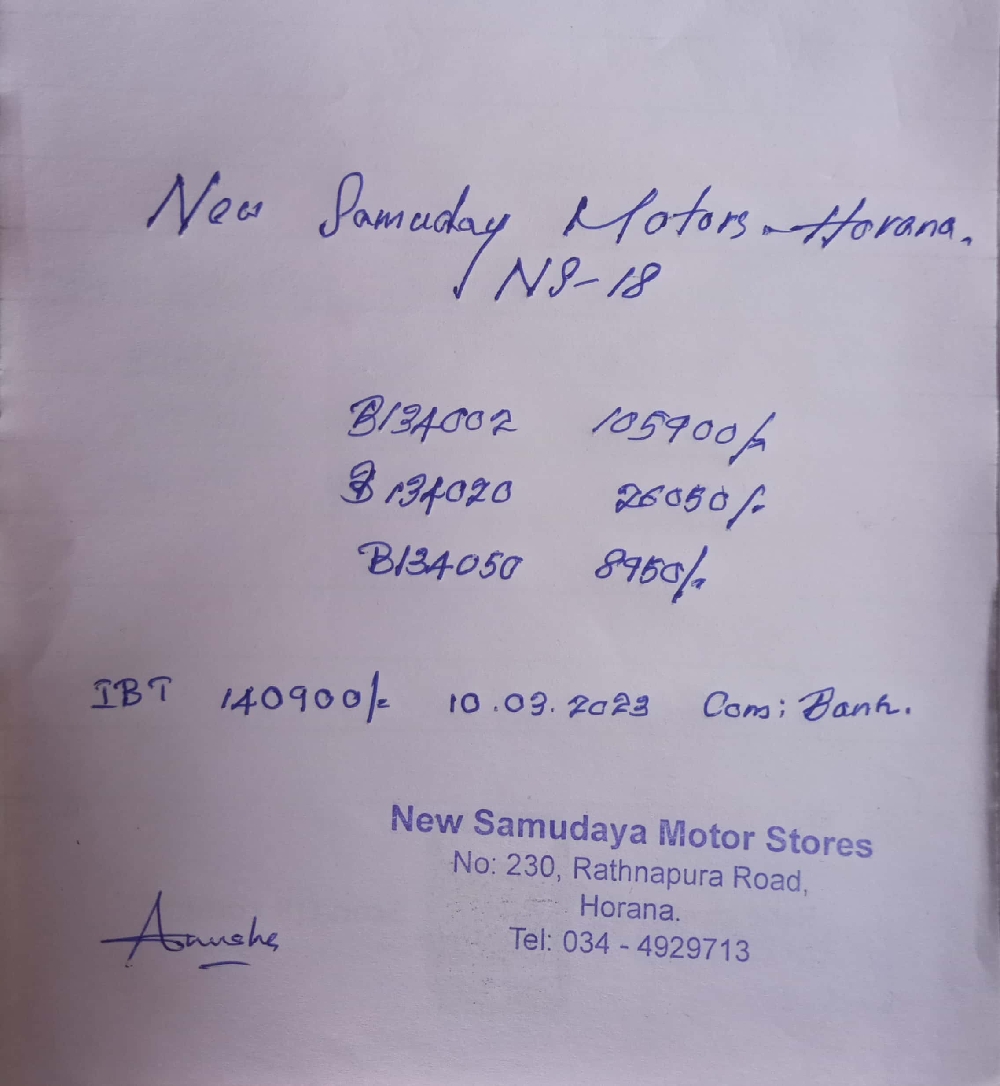 New Samuday Motors - Horana.
NS-18
B134002 105900/-
B134020 26050/-
B134050 8950/-
IBT 140900/- 10.03.2023 Com; Bank.
New Samudaya Motor Stores
No: 230, Rathnapura Road,
Horana.
Tel: 034 - 4929713
Anusha